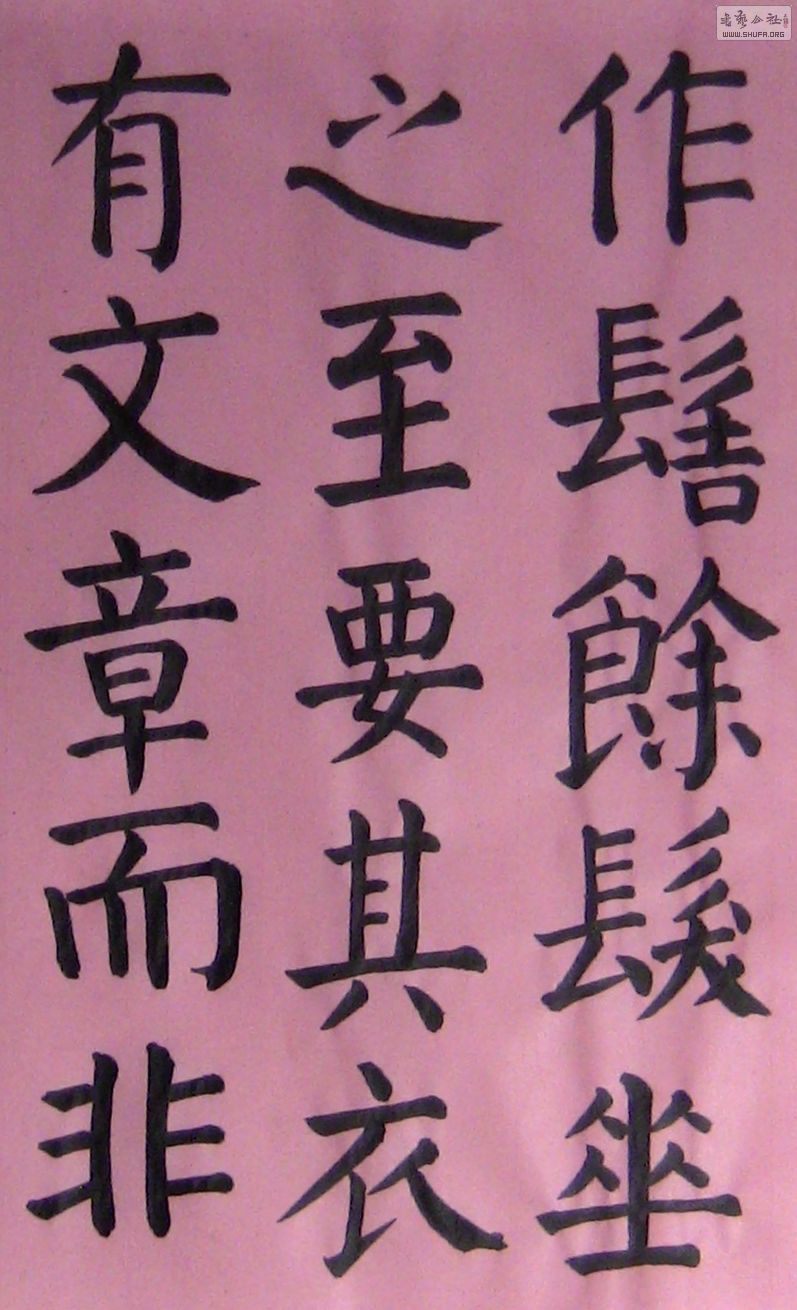 作髻餘髮坐
之至要其衣
有文章而非
書藝公社
WWW.SHUFA.ORG